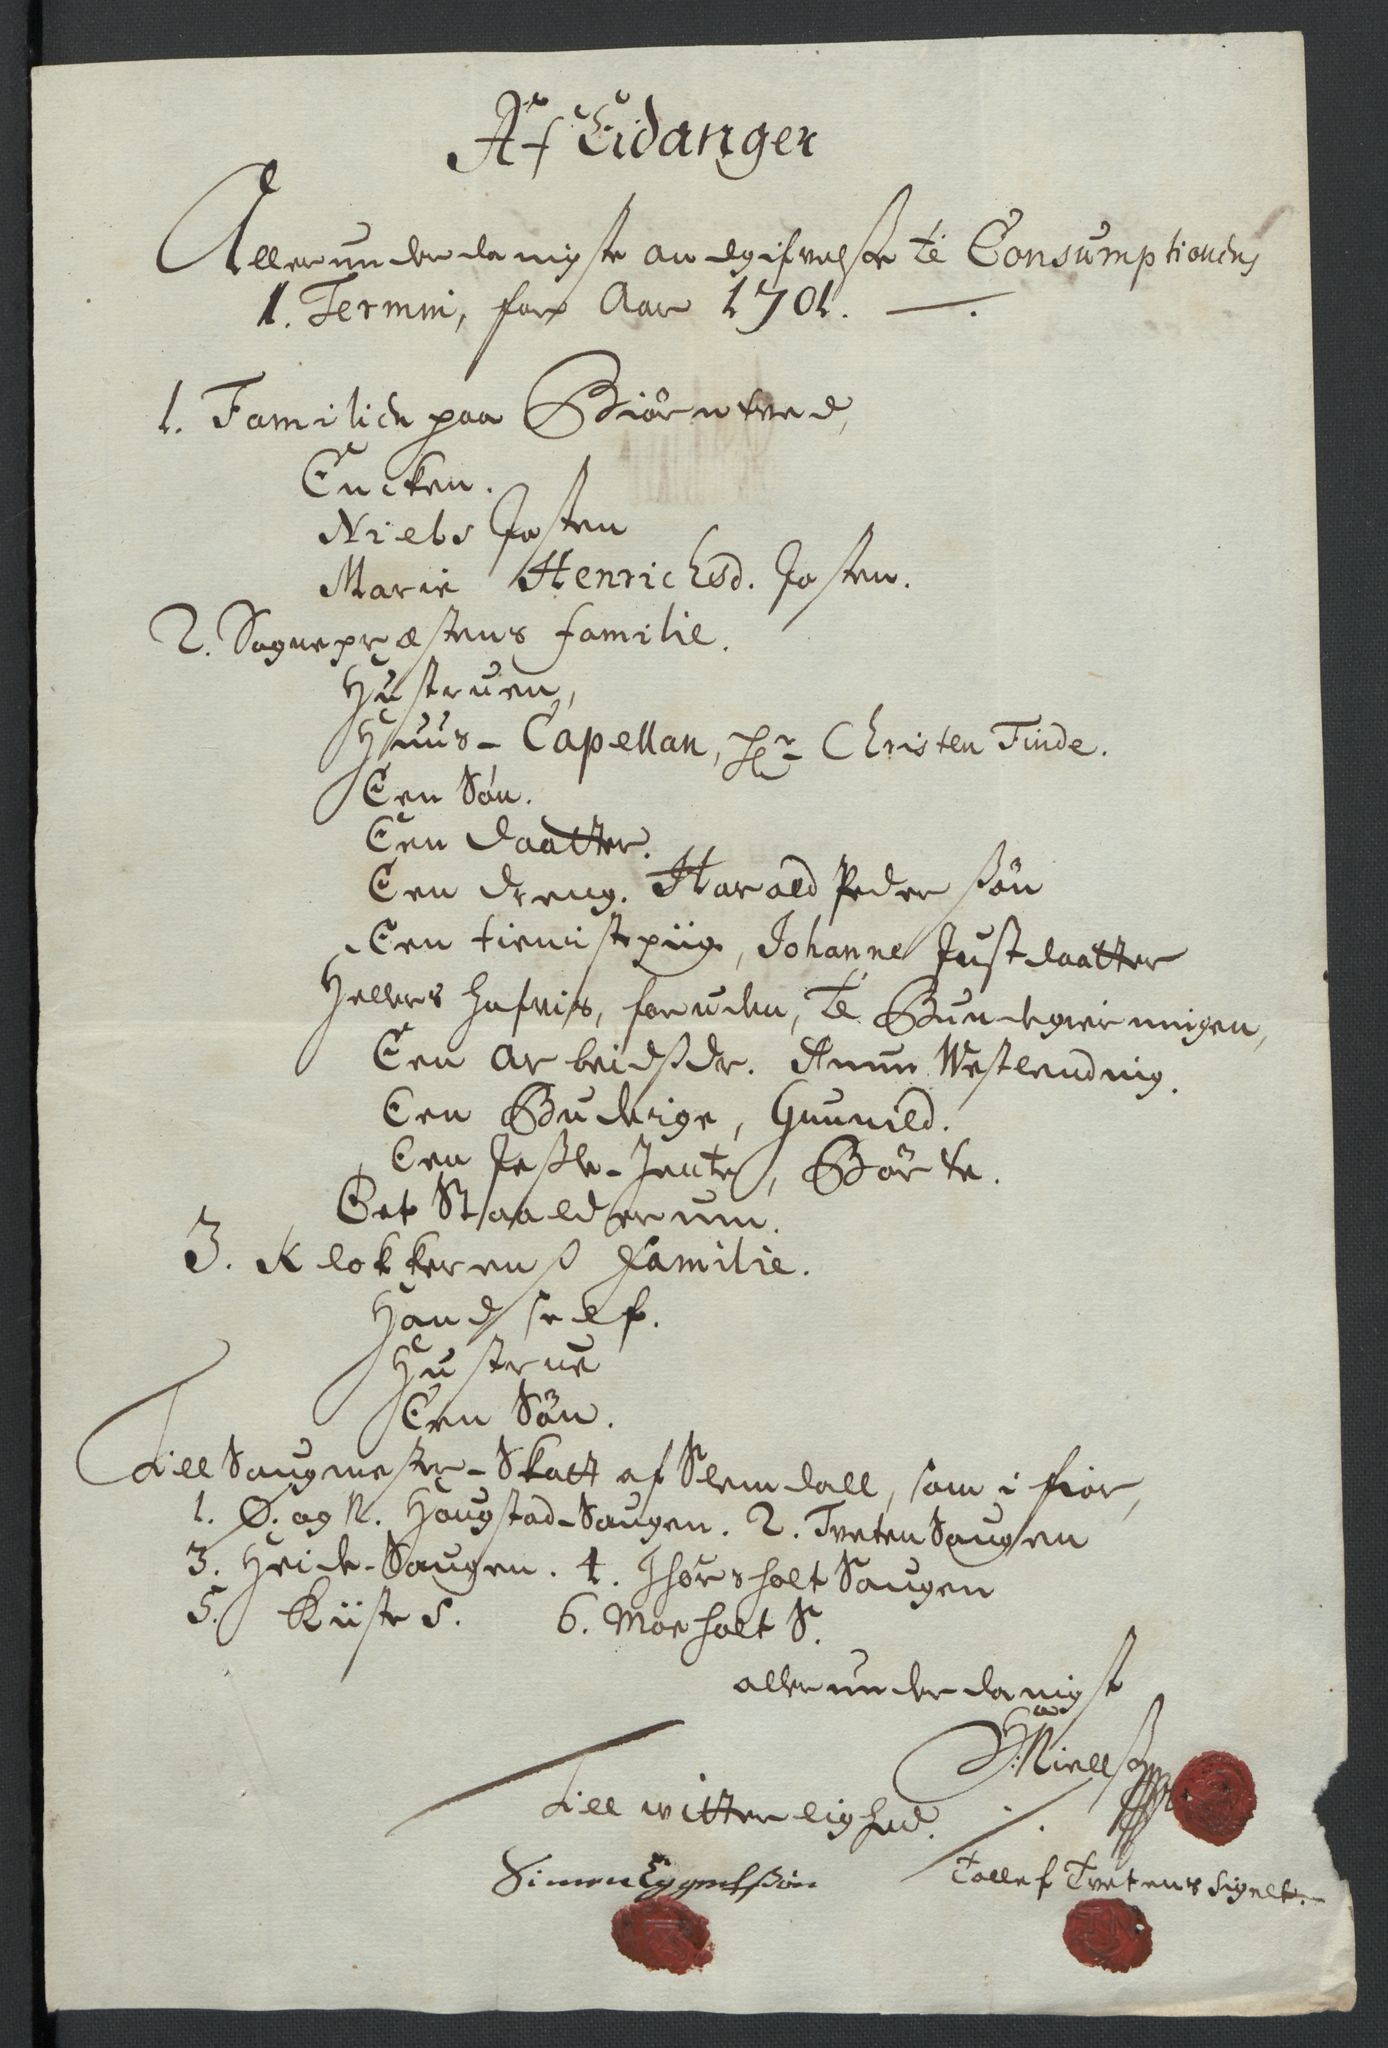 Af Eidanger
Allerunderdanigste andgifvelse til Consumptionens
1. Termin, for Aar 1701.
1. Familien paa Biørntved,
Encken.
Niels Josten
Marie Henrichsd. Josten.
2. Sognepræstens familie.
Hustruen,
Huus-Capellan, Hr Christen Finde.
Een Søn.
Een daatter.
Een dreng. Harald Pedersøn
Een tienistepiig, Johanne Justdaatter
Hellers hafvis, foruden, til Bundegierningen,
Een Arbeidsdr. Anun Westlending.
Een Budeige, Gunnild.
Een Jente, Børte.
Eet Staalderum.
3. Klokkerens familie.
Hand self.
Hustrue
Een Søn.
Till Saugmester-Skatt af Slemdall, som i fior,
1. Ø. og N. Hougstad-Saugen. 2. Tveten Saugen
3. Heide-Saugen. 4. Thorsholt Saugen
5. Kiiste S. 6. Moeholt S.
allerunderdanigst
H: Niellssøn
Till witterlighed.
Simen søn Tollef Tvetens Signet.